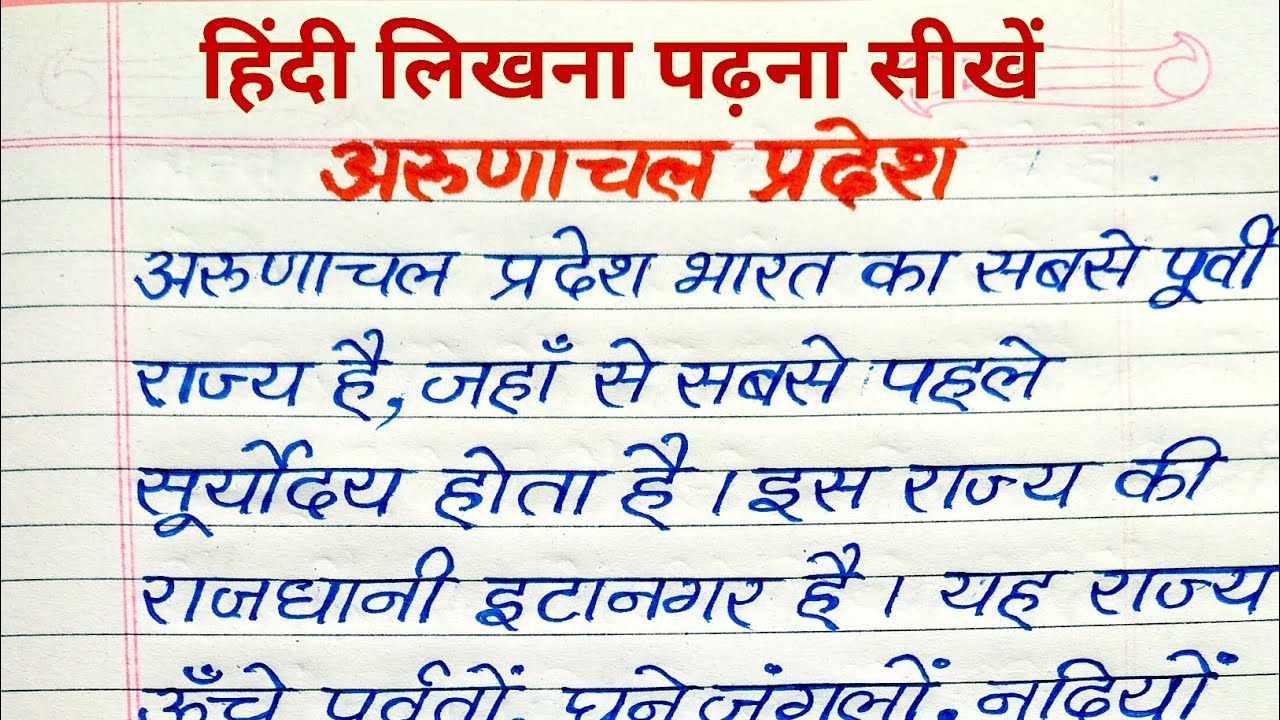 हिंदी लिखना पढ़ना सीखें
अरुणाचल प्रदेश
अरुणाचल प्रदेश भारत का सबसे पूर्वी
राज्य है, जहाँ से सबसे पहले
सूर्योदय होता है। इस राज्य की
राजधानी इटानगर है। यह राज्य
ऊँचे पर्वतों, घने जंगलों, नदियों